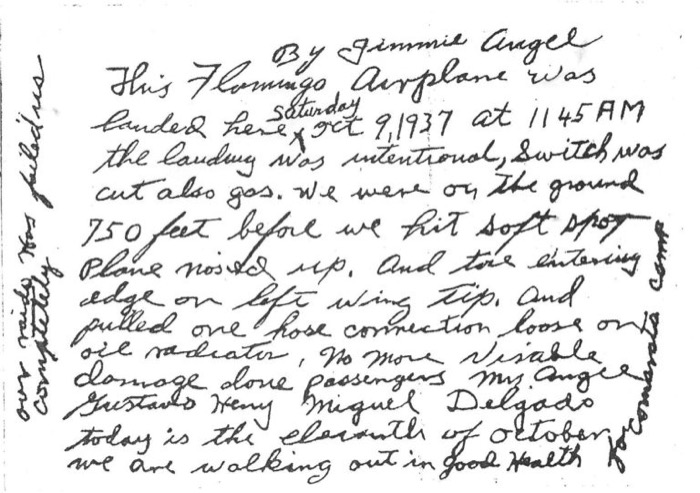 By Jimmie Angel
This Flamingo Airplane was
landed here Saturday Oct 9, 1937 at 11 45 AM
the landing was intentional, Switch was
cut also gas. We were on the ground
750 feet before we hit soft spot
Plane nosed up. And tore entering
edge on left wing tip. And
pulled one hose connection loose on
oil radiator, No More Visable
damage done passengers Mrs Angel
Gustavo Heny Miguel Delgado
today is the eleventh of October
we are walking out in good Health
for camp
our radio has failed us
completely